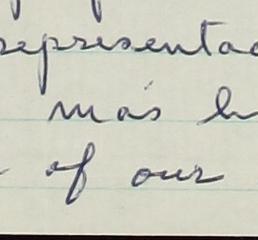 representac
más h
of our